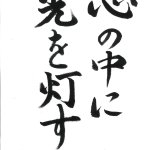 心の中に
光を灯す